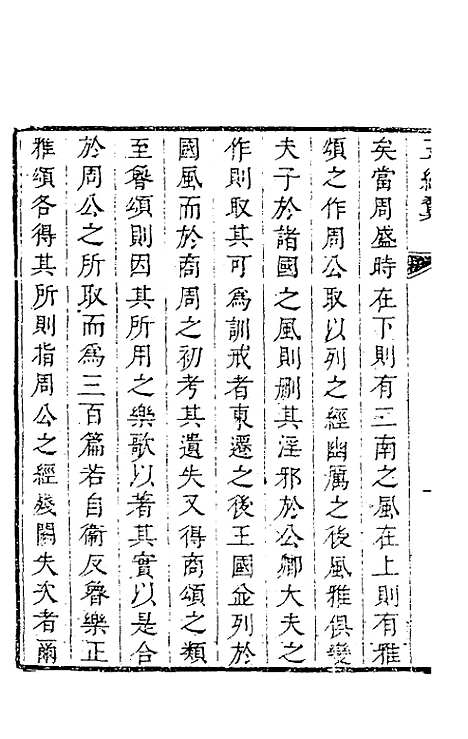 矣當周盛時在下則有二南之風在上則有雅
頌之作周公取以列之經幽厲之後風雅俱變
夫子於諸國之風則刪其淫邪於公卿大夫之
作則取其可為訓戒者東遷之後王國並列於
國風而於商周之初考其遺失又得商頌之類
至魯頌則因其所用之樂歌以著其實以是合
於周公之所取而為三百篇若自衛反魯樂正
雅頌各得其所則指周公之經殘闕失次者爾